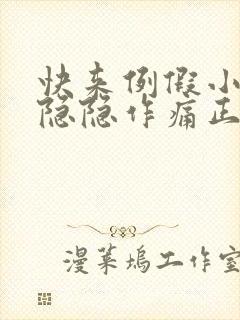 快来例假小
隐隐作痛正
漫菓坞工作室